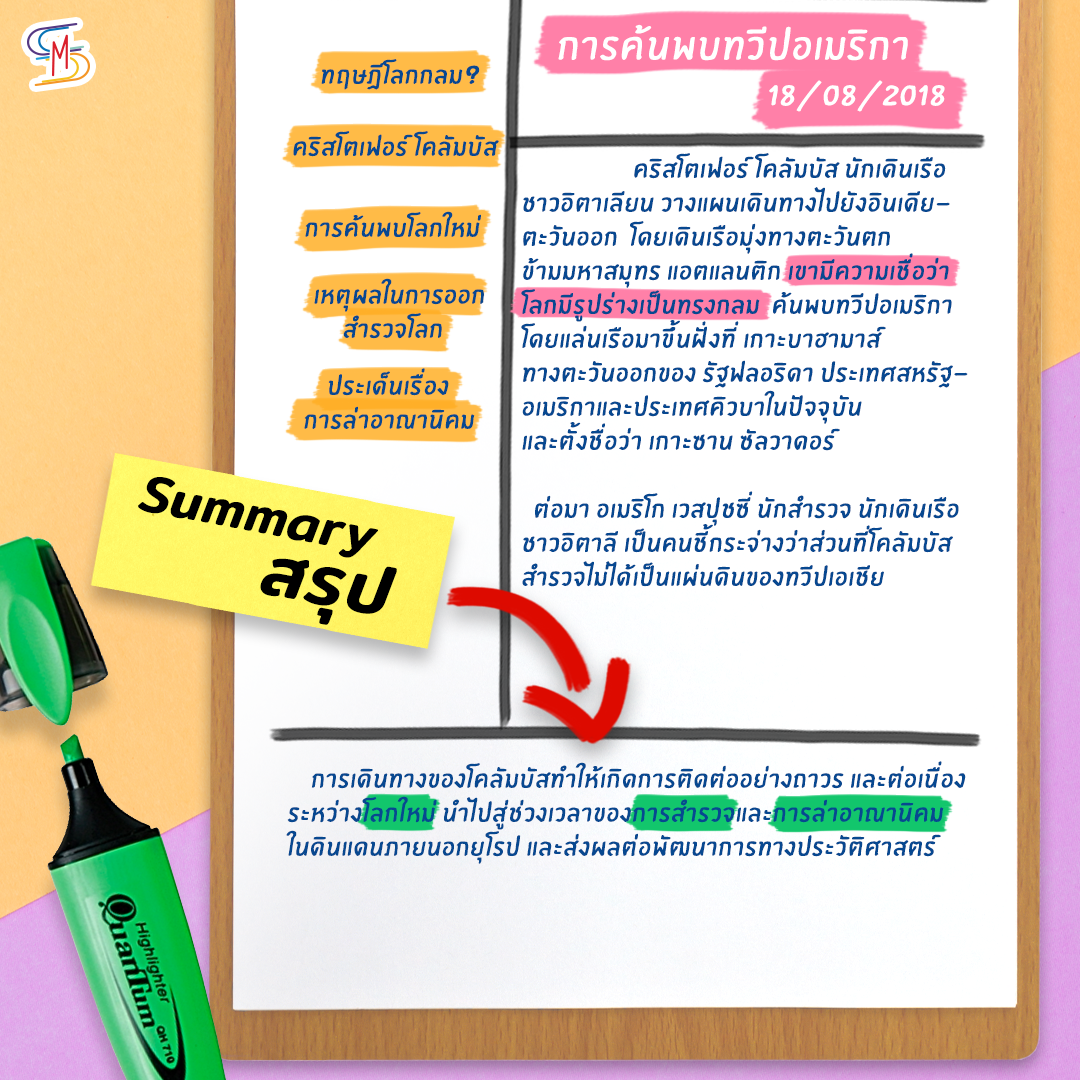 การค้นพบทวีปอเมริกา
18/08/2018
ทฤษฎีโลกกลม?
คริสโตเฟอร์ โคลัมบัส
การค้นพบโลกใหม่
เหตุผลในการออก
สำรวจโลก
ประเด็นเรื่อง
การล่าอาณานิคม
คริสโตเฟอร์ โคลัมบัส นักเดินเรือ
ชาวอิตาเลียน วางแผนเดินทางไปยังอินเดีย-
ตะวันออก โดยเดินเรือมุ่งทางตะวันตก
ข้ามมหาสมุทร แอตแลนติก เขามีความเชื่อว่า
โลกมีรูปร่างเป็นทรงกลม ค้นพบทวีปอเมริกา
โดยแล่นเรือมาขึ้นฝั่งที่ เกาะบาฮามาส์
ทางตะวันออกของ รัฐฟลอริดา ประเทศสหรัฐ-
อเมริกาและประเทศคิวบาในปัจจุบัน
และตั้งชื่อว่า เกาะซาน ซัลวาดอร์
ต่อมา อเมริโก เวสปุชชี่ นักสำรวจ นักเดินเรือ
ชาวอิตาลี เป็นคนชี้กระจ่างว่าส่วนที่โคลัมบัส
สำรวจไม่ได้เป็นแผ่นดินของทวีปเอเชีย
Summary
สรุป
การเดินทางของโคลัมบัสทำให้เกิดการติดต่ออย่างถาวร และต่อเนื่อง
ระหว่างโลกใหม่ นำไปสู่ช่วงเวลาของการสำรวจและการล่าอาณานิคม
ในดินแดนภายนอกยุโรป และส่งผลต่อพัฒนาการทางประวัติศาสตร์
Highlighter
QuanTum
QH 710
SMS